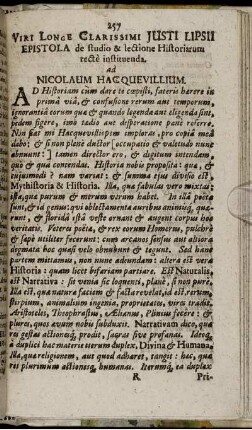 257
VIRI LONGE CLARISSIMI JUSTI LIPSII
EPISTOLA de studio & lectione Historiarum
rectè instituenda.
ad
NICOLAUM HACQUEVILLIUM.
AD Historiam cùm dare te cœpisti, fateris hærere in
primâ viâ, & confusione rerum aut temporum,
ignorantiâ eorum quæ & quando legenda aut eligenda sint,
pedem figere, imò tædio aut desperatione pæne referre.
Non sLat mi Hacquevilli opem imploras, pro copiâ meâ
dabo: & si non plenè ductor [occupatio & valetudo nunc
abnuunt:] tamen director ero, & digitum intendam
quò & quà contendas. Historia nobis proposita: quæ, &
cujusmodi? nam variat: & summa ejus divisio est
Mythistoria & Historia. Illa, quæ fabulas vero mixtas:
ista, quæ purum & merum verum habet. In illâ poëtæ
sunt, & id genus: qui oblectamenta auribus animisq; quæ-
runt, & floridâ istâ veste ornant & augent corpus hoc
veritatis. Veteres poëtæ, & rex eorum Homerus, pulchrè
& sapè utiliter fecerunt: cum arcanos sensus aut altiora
dogmata hoc quasi velo obumbrent & tegunt. Sed hanc
partem mittamus, non nunc adeundam: altera est vera
Historia: quam licet bifariam partiare. Est Naturalis,
est Narrativa: sic venia sic loquenti, planè, si non purè.
Illa est, quæ natura faciem & facta revelat, id est, rerum,
stirpium, animalium ingenia, proprietates, vires tradit,
Aristoteles, Theophrastus, Ælianus, Plinius fecère: &
plures, quos ævum nobis subduxit. Narrativam dico, quæ
res gestas actiones? prodit, sacras sive profanas. Ideoq;
& duplici hac materie iterum duplex, Divina & Humana.
Illa, quæ religionem, aut quod adhæret, tangit: hæc, quæ
res plurimum actionesq; humanas. Iterumq; ea duplex
R Pri-